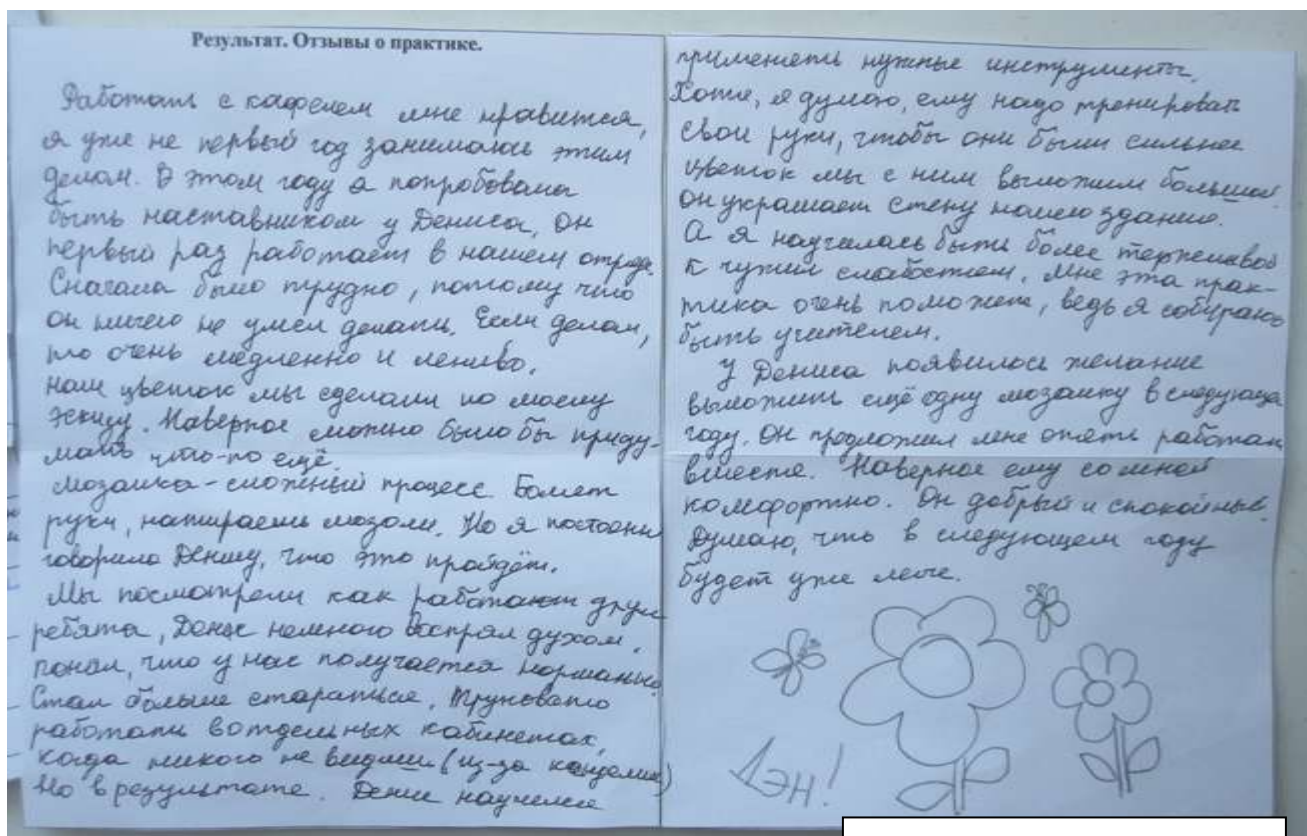 Результат. Отзывы о практике.
Работать с кафелем мне нравится,
я уже не первый год занимаюсь этим
делом. В этом году я попробовала
быть наставником у Дениса, он
первый раз работает в нашем отряде.
Сначала было трудно, потому что
он ничего не умел делать. Если делал,
то очень медленно и лениво.
Наш цветок мы сделали по моему
эскизу. Наверное можно было бы приду-
мать что-то ещё.
Мозаика - сложный процесс. Болят
руки, натираешь мозоли. Но я постоянно
говорила Денису, что это пройдёт.
Мы посмотрели как работают другие
ребята, Денис немного воспрял духом.
понял, что у нас получается нормально.
Стал больше стараться. Трудновато
работать в отдельных кабинетах,
когда никого не видишь (из-за пандемии)
Но в результате. Денис научился
применять нужные инструменты.
Хотя, я думаю, ему надо тренировать
свои руки, чтобы они были сильнее
Цветок мы с ним выложили большой.
он украшает стену нашего здания.
А я научилась быть более терпеливой
к чужим слабостям. Мне эта прак-
тика очень поможет, ведь я собираюсь
быть учителем.
У Дениса появилось желание
выложить ещё одну мозаику в следующем
году. Он предложил мне опять работать
вместе. Наверное ему со мной
комфортно. Он добрый и спокойный.
Думаю, что в следующем году
будет уже легче.
Дэн!